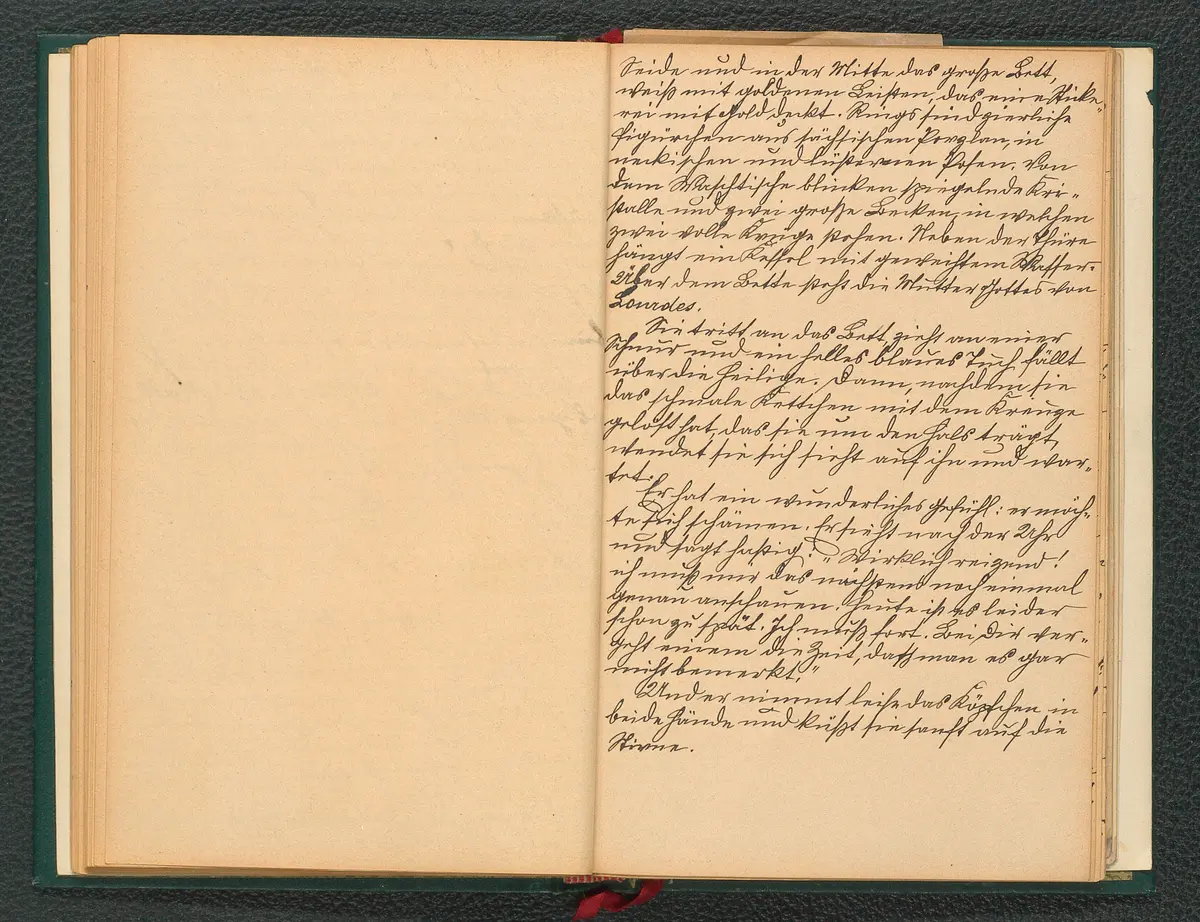 Seide und in der Mitte das große Bett,
weiß mit goldenen Leisten, das eine Sticke-
rei mit Gold deckt. Rings sind zierliche
Figürchen aus sächsischen Porzlan, in
neckischen und lüsternen Posen. Von
dem Waschtische blinken spiegelnde Kri-
stalle und zwei große Becken, in welchen
zwei volle Krüge stehen. Neben der Thüre
hängt ein Kessel mit geweihtem Wasser.
Über dem Bette steht die Mutter Gottes von
Lourdes.
Sie tritt an das Bett, zieht an einer
Schnur und ein helles blaues Tuch fällt
über die Heilige. Dann, nachdem sie
das schmale Kettchen mit dem Kreuze
gelöst hat, das sie um den Hals trägt,
wendet sie sich sieht auf ihn und war-
tet.
Er hat ein wunderliches Gefühl: er möch-
te sich schämen. Er sieht nach der Uhr
und sagt hastig: „Wirklich reizend!
ich muß mir das nächstens noch einmal
genau anschauen. Heute ist es leider
schon zu spät. Ich muß fort. Bei Dir ver-
geht einem die Zeit, daß man es gar
nicht bemerkt."
Und er nimmt leise das Köpfchen in
beide Hände und küßt sie sanft auf die
Stirne.